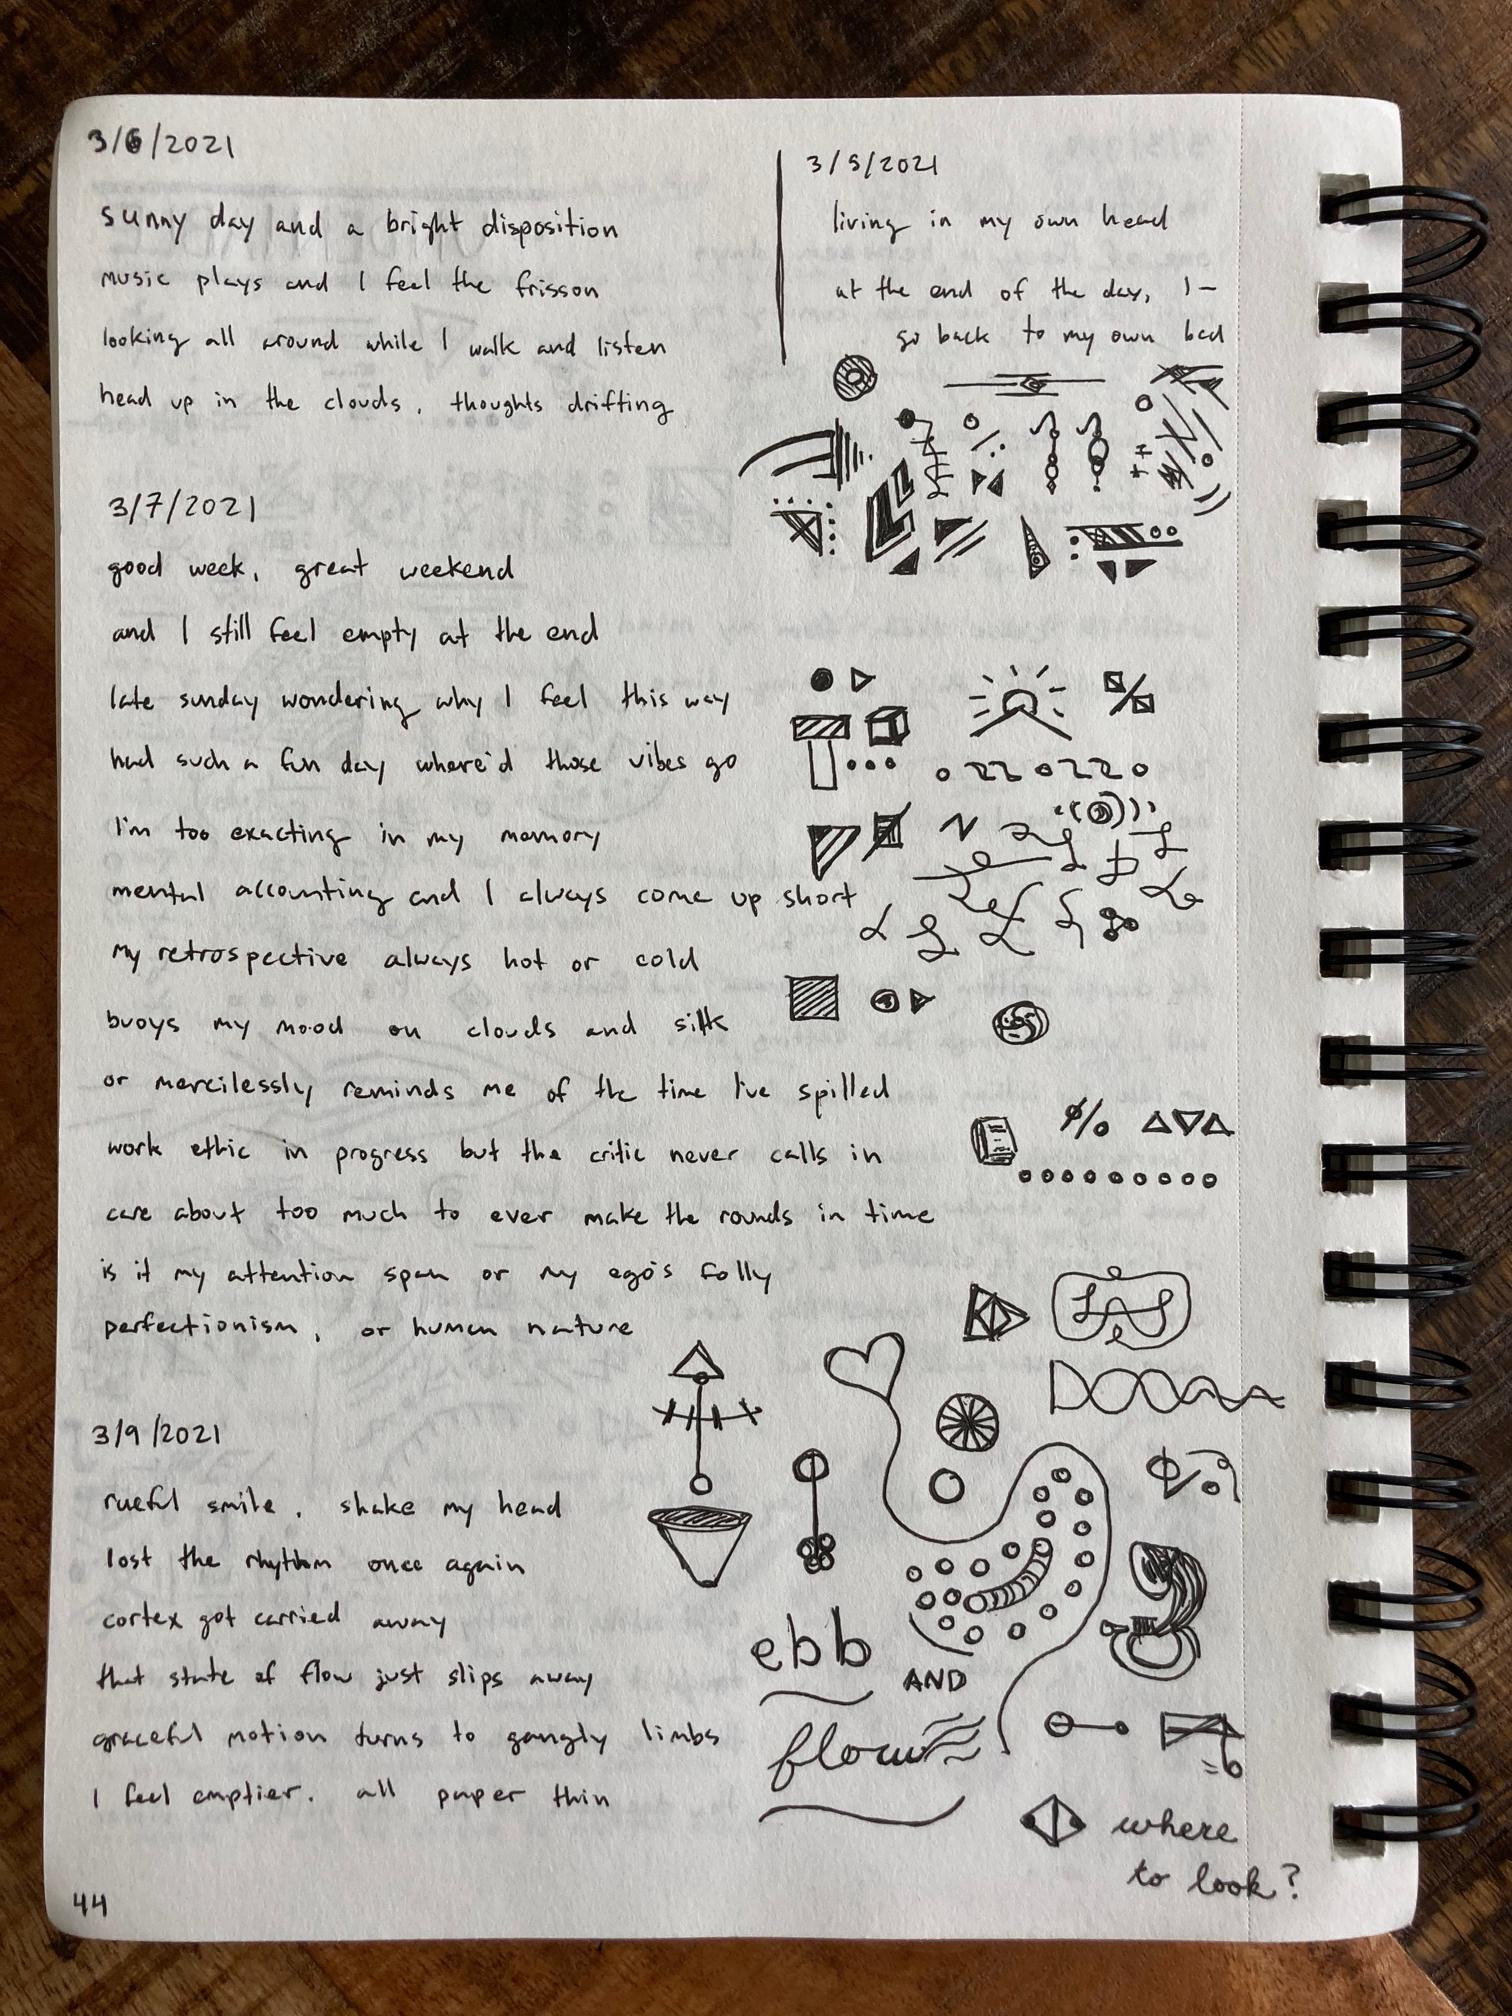 3/6/2021
sunny day and a bright disposition
music plays and I feel the frisson
looking all around while I walk and listen
head up in the clouds, thoughts drifting
3/5/2021
living in my own head
at the end of the day, I –
go back to my own bed
3/7/2021
good week, great weekend
and I still feel empty at the end
late sunday wondering why I feel this way
had such a fun day where'd those vibes go
I'm too exacting in my memory
mental accounting and I always come up short
my retrospective always hot or cold
buoys my mood on clouds and silk
or mercilessly reminds me of the time I've spilled
work ethic in progress but the critic never calls in
care about too much to ever make the rounds in time
is it my attention span or my ego's folly
perfectionism, or human nature
3/9/2021
rueful smile, shake my head
lost the rhythm once again
cortex got carried away
that state of flow just slips away
graceful motion turns to gangly limbs
I feel emptier. all paper thin
ebb
AND
flow
where
to look?
44